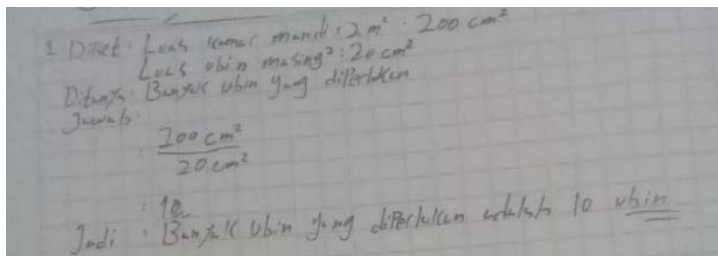 1 Diket : Luas kamar mandi : 2 m² : 200 cm²
Luas ubin masing² : 20 cm²
Ditanya : Banyak ubin yang diperlukan
Jawab :
: 200 cm²
20 cm²
: 10
Jadi : Banyak ubin yang diperlukan adalah 10 ubin